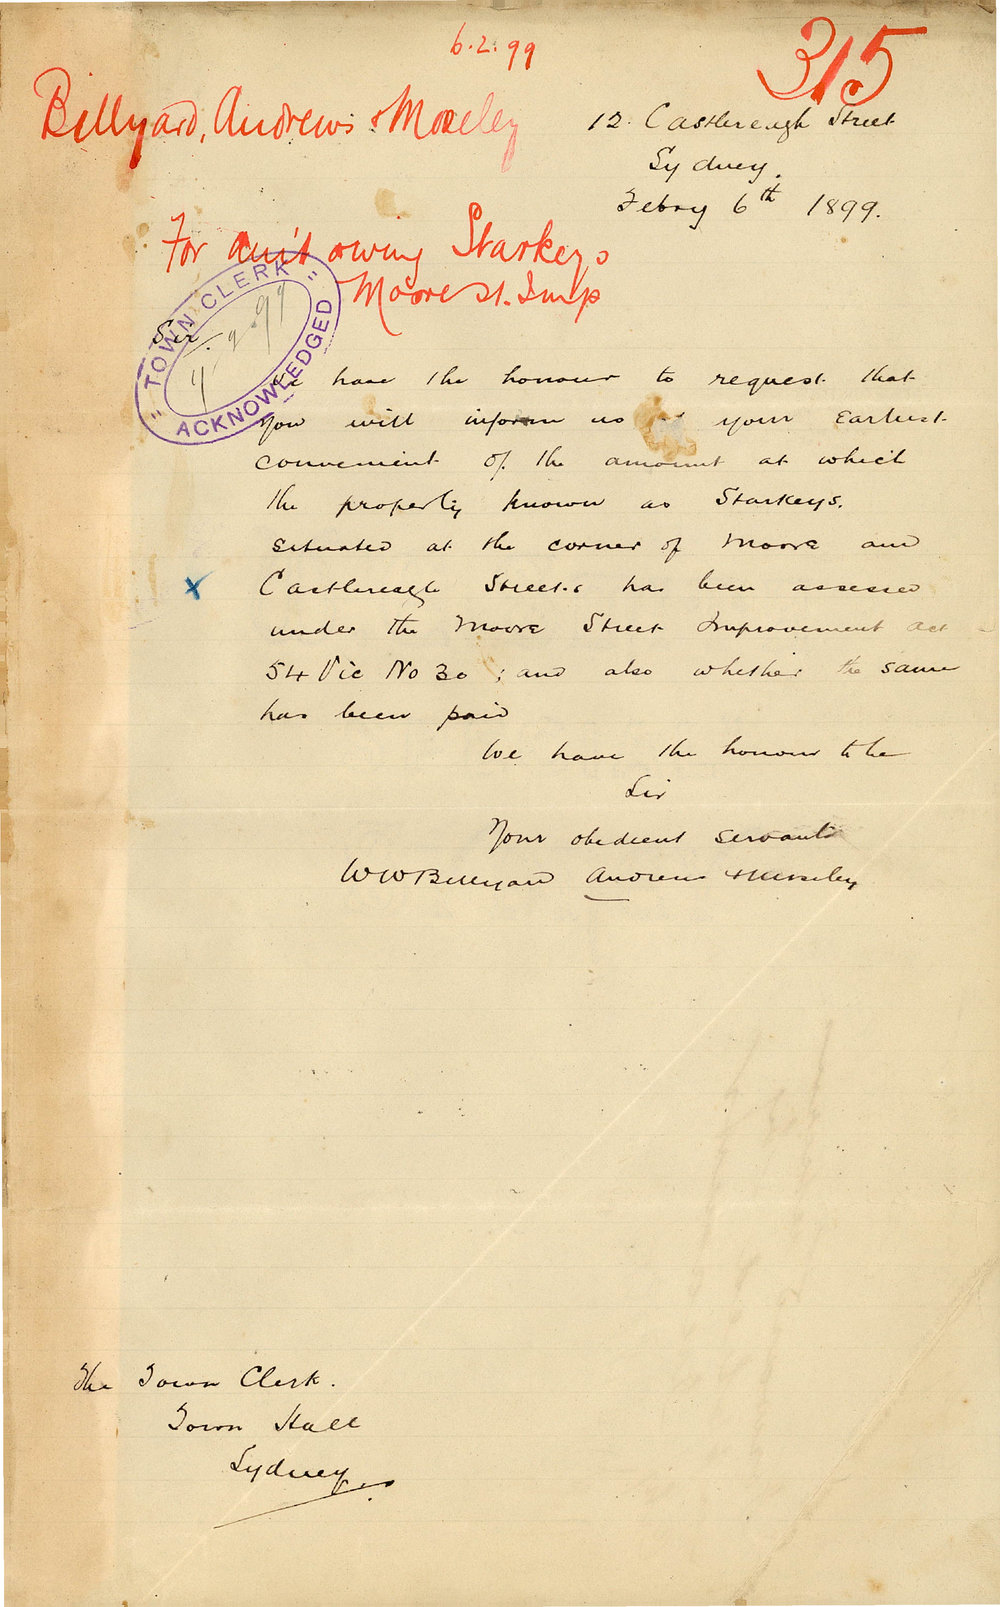 6.2.99
315
Billyard, Andrews & Moseley
12 Castlereagh Street
Sydney.
Febry 6th 1899.
For Am't owing Starkeys
Moore St. Imp
TOWN CLERK
ACKNOWLEDGED
Sir.
We have the honour to request that
you will inform us at your Earliest
convenient of the amount at which
the property known as Starkeys.
situated at the corner of Moore and
x
Castlereagh Streets has been assessed
under the Moore Street Improvement act
54 Vic No 30 ; and also whether the same
has been paid
We have the honour to be
Sir
Your obedient servants
W W Billyard Andrews & Moseley
The Town Clerk.
Town Hall
Sydney